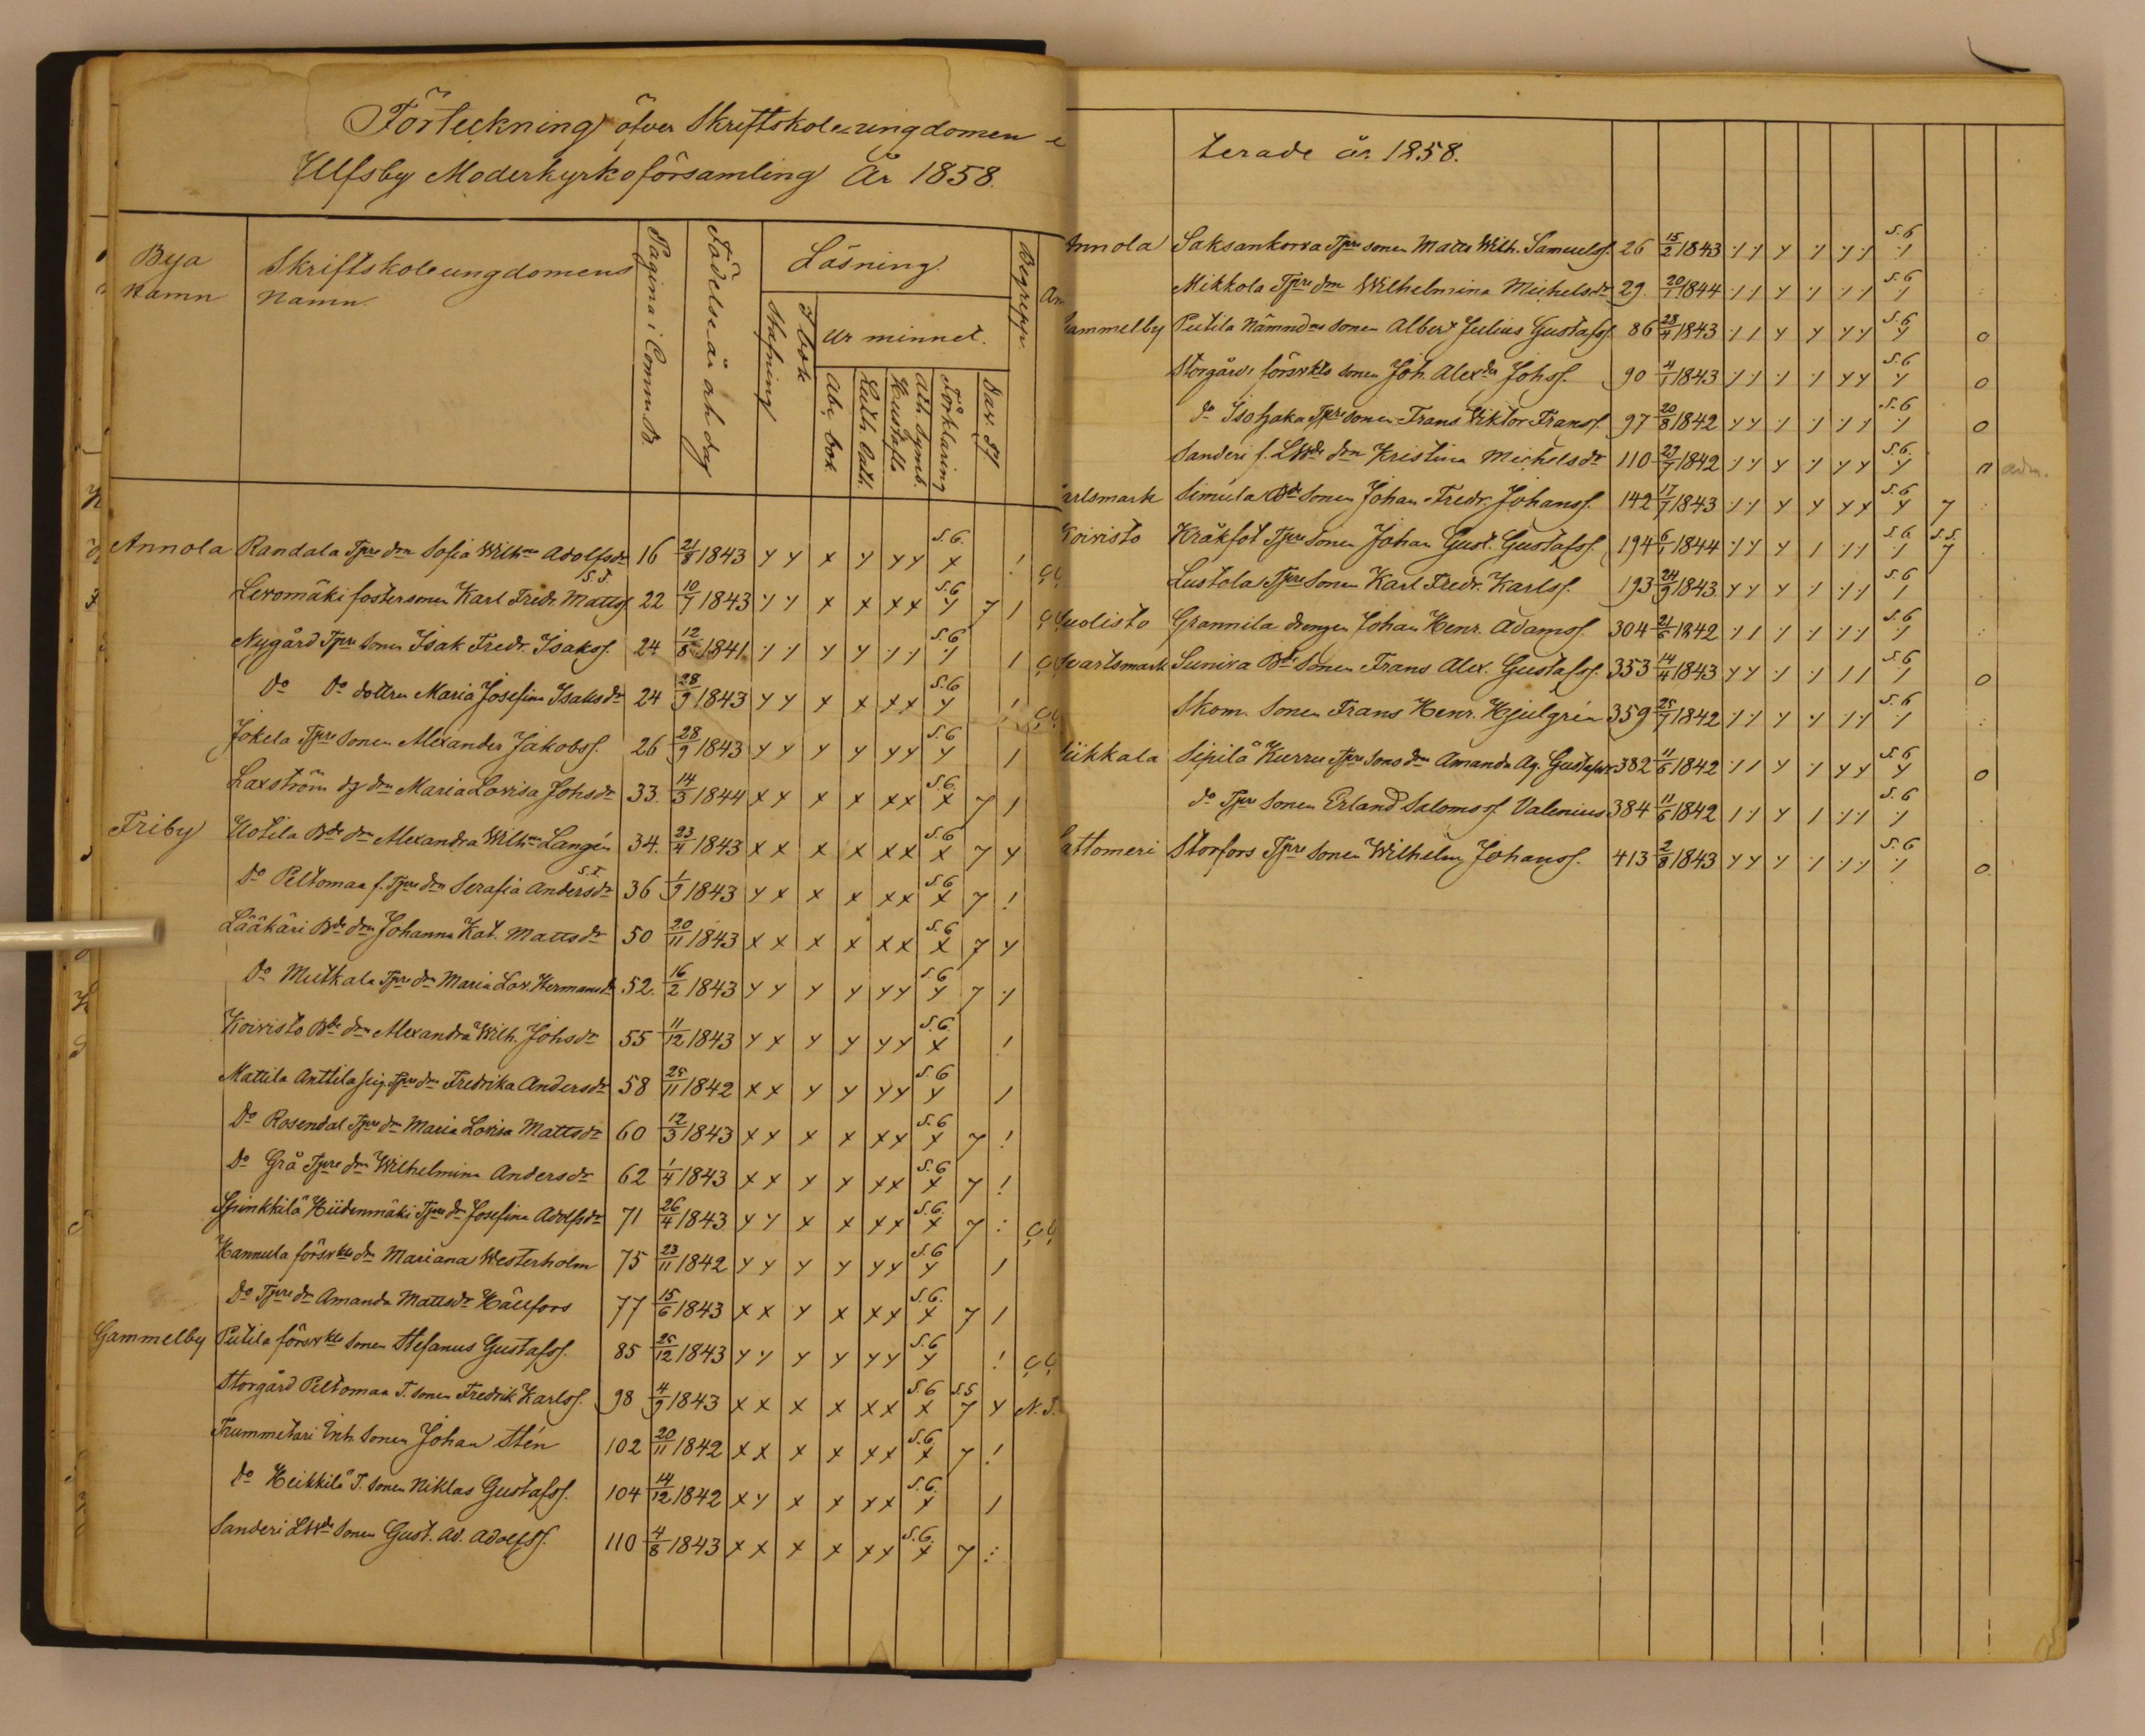 Förteckning öfver Skriftskole-ungdomen i
Ulfsby Moderkyrkoförsamling År 1858.
Bya namn
Skriftskoleungdomens namn
Pagina i Comm. B.
Födelse år och dag
Läsning.
Stafning
I bok
Ur minnet.
Abc bok.
Luth. Cath.
Hustafla
Ath. Symb.
Förklaring
Dav. Ps
Begrepp.
Annola Randala Tpre dn Sofia Wilhna Adolfsdr 16 21/8 1843 S.6.
S.T.
Levomäki fostersonen Karl Fredr. Mattss. 22 10/7 1843 S.6 7
Nygård Tpre sonen Isak Fredr. Isakss. 24 12/8 1841 S.6
Do Do dottren Maria Josefina Isaksdr 24 28/9 1843 S.6
Jokela Tpre sonen Alexander Jakobss. 26 28/9 1843 S.6
Laxström dg dn Maria Lovisa Johsdr 33. 14/3 1844 S.6. 7
Friby Uotila Bde dn Alexandra Wilhna Langén 34. 23/4 1843 S.6 7
S.T.
Do Peltomaa f. Tpre dn Serafia Andersdr 36 1/9 1843 S.6 7
Lääkäri Bde dn Johanna Kat. Mattsdr 50 20/11 1843 S.6 7
Do Mutkala Tpre dn Maria Lov. Hermansdr 52. 16/2 1843 S.6 7
Koivisto Bde dn Alexandra Wilh. Johsdr 55 11/12 1843 S.6.
Mattila Anttila Tpre dn Fredrika Andersdr 58 25/11 1842 S.6
Do Rosendal Tpre dn Maria Lovisa Mattsdr 60 12/3 1843 S.6 7
Do Grå Tpre dn Wilhelmina Andersdr 62 1/4 1843 S.6 7
Hiidenmäki Tpre dr Josefina Adolfsdr 71 26/4 1843 S.6. 7
Hannula försvkts dn Mariana Westerholm 75 23/11 1842 S.6
Do Tpre dr Amanda Mattsdr Hällfors 77 15/6 1843 S.6. 7
Gammelby Putila försvkts sonen Stefanus Gustafss. 85 25/12 1843 S.6
Storgård Peltomaa T. sonen Fredrik Karlss. 98 4/9 1843 S.6 S.S 7 N.S.
Trummetari Inh. sonen Johan Stén 102 20/11 1842 S.6 7
Do Heikkilä T. sonen Niklas Gustafss. 104 14/12 1842 S.6.
Sanderi Lwde sonen Gust. Ad. Adolfss. 110 4/8 1843 S.6. 7
terade år 1858.
Annola Saksankorva Tpre sonen Matts Wilh. Samuelss. 26 15/2 1843 S.6
Mikkola Tpre dn Wilhelmina Michelsdr 29. 20/1 1844 S.6
Gammelby Putila Nämndns sonen Albert Julius Gustafss. 86 28/4 1843 S.6 0
Storgårds försvkts sonen Joh. Alexdr Johss. 90 4/1 1843 S.6 0
do Isohaka Tpre sonen Frans Viktor Franss. 97 20/8 1842 S.6 0
Sanderi f. Lwde dn Kristina Michelsdr 110 23/7 1842 S.6. adm.
Carlsmark Simula Bde sonen Johan Fredr. Johanss. 142 17/7 1843 S.6 7
Koivisto Kråkfot Tpre sonen Johan Gust. Gustafss. 194 6/1 1844 S.6 S.S. 7
Lustola Tpre sonen Karl Fredr. Karlss. 193 24/9 1843 S.6
Suolisto Grannila drengen Johan Henr. Adamss. 304 21/6 1842 S.6
Svartsmark Suniva Bde sonen Frans Alex. Gustafss. 353 14/4 1843 S.6 0
Skom. sonen Frans Henr. Hjulgrén 359 25/7 1842 S.6
Sipilä Kurru Tpre sons dn Amanda Ag. Gustafsdr 382 11/6 1842 S.6 0
do Tpre sonen Erland Salomss. Valenius 384 11/6 1842 S.6
Lattomeri Storfors Tpre sonen Wilhelm Johanss. 413 2/8 1843 S.6 0.